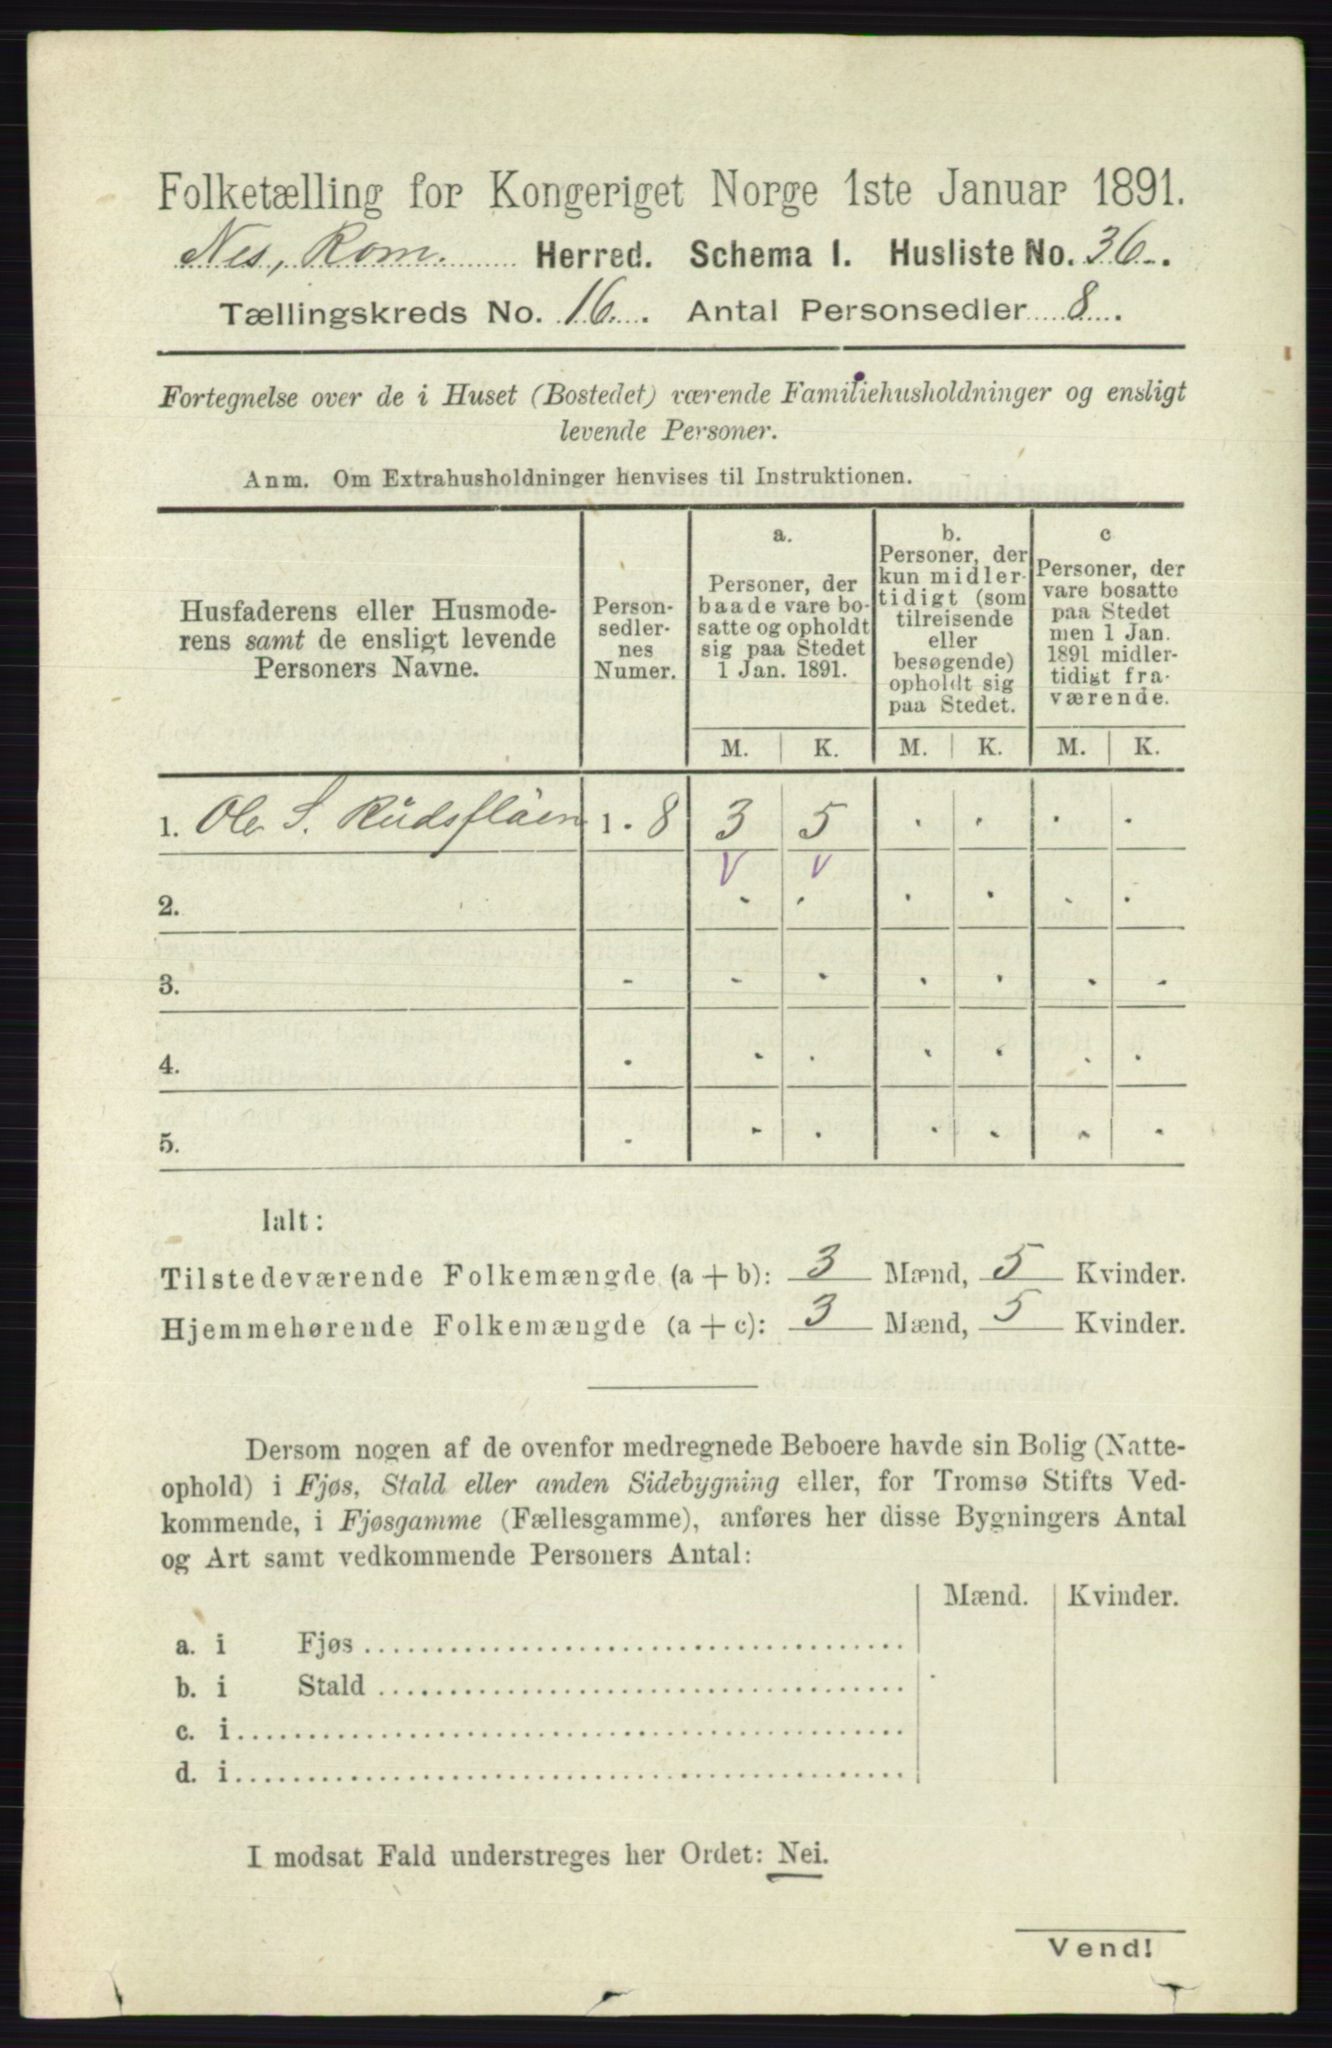 Folketælling for Kongeriget Norge 1ste Januar 1891.
Nes, Rom. Herred. Schema I. Husliste No. 36.
Tællingskreds No. 16. Antal Personsedler 8.
Fortegnelse over de i Huset (Bostedet) værende Familiehusholdninger og ensligt
levende Personer.
Anm. Om Extrahusholdninger henvises til Instruktionen.
Husfaderens eller Husmode-
rens samt de ensligt levende
Personers Navne.
Person-
sedler-
nes
Numer.
a.
Personer, der
baade vare bo-
satte og opholdt
sig paa Stedet
1 Jan. 1891.
b.
Personer, der
kun midler-
tidigt (som
tilreisende
eller
besøgende)
opholdt sig
paa Stedet.
c
Personer, der
vare bosatte
paa Stedet
men 1 Jan.
1891 midler-
tidigt fra-
værende.
M. K. M. K. M. K.
1. Ole S. Rudsfløen 1 - 8 3 5 . . . .
v v
2. - . . . . .
3. - - . . . . -
4. . . . . . . .
5. - . . . . . .
Ialt:
Tilstedeværende Folkemængde (a + b): 3 Mænd, 5 Kvinder.
Hjemmehørende Folkemængde (a + c): 3 Mænd, 5 Kvinder.
Dersom nogen af de ovenfor medregnede Beboere havde sin Bolig (Natte-
ophold) i Fjøs, Stald eller anden Sidebygning eller, for Tromsø Stifts Ved-
kommende, i Fjøsgamme (Fællesgamme), anføres her disse Bygningers Antal
og Art samt vedkommende Personers Antal:
Mænd. Kvinder.
a. i Fjøs
b. i Stald
c. i
d. i
I modsat Fald understreges her Ordet: Nei.
Vend!